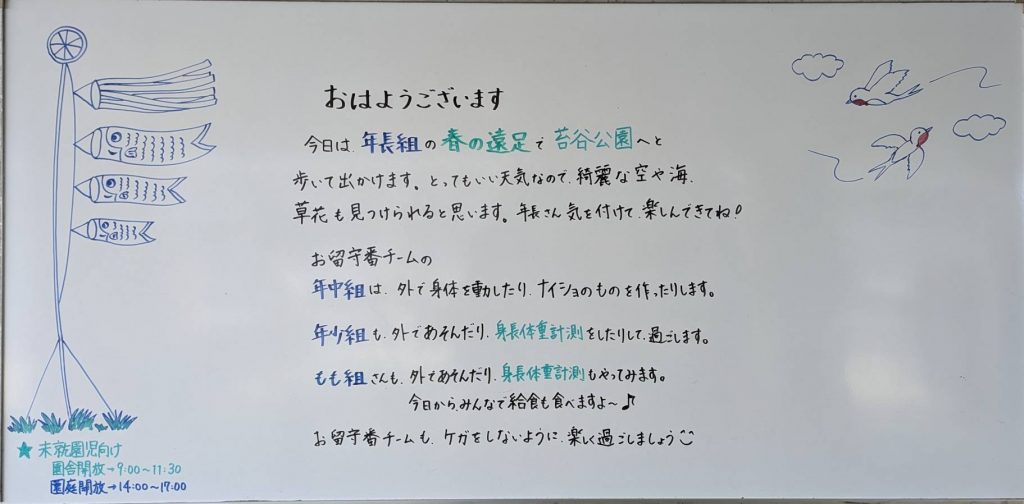 おはようございます
今日は、年長組の春の遠足で苔谷公園へと
歩いて出かけます。とってもいい天気なので、綺麗な空や海、
草花も見つけられると思います。年長さん気を付けて、楽しんできてね!
お留守番チームの
年中組は、外で身体を動かしたり、ナイショのものを作ったりします。
年少組も、外であそんだり、身長体重計測をしたりして、過ごします。
もも組さんも、外であそんだり、身長体重計測もやってみます。
今日から、みんなで給食も食べますよ～♪
お留守番チームも、ケガをしないように、楽しく過ごしましょう
★ 未就園児向け
園舎開放→9:00～11:30
園庭開放→14:00～17:00